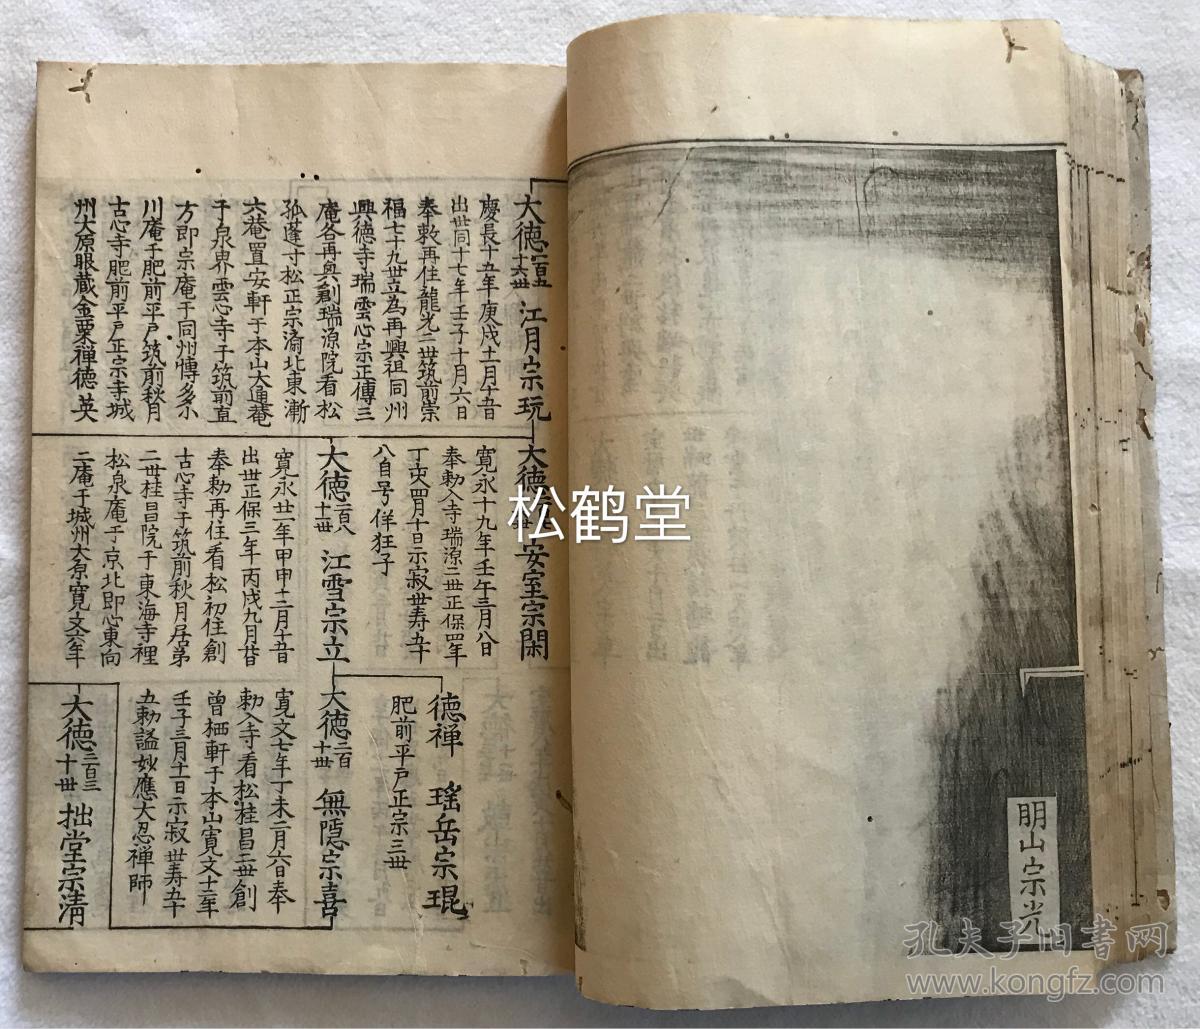 明山宗光
大德百五十六世 江月宗玩
慶長十五年庚戌十一月十五日
出世同十七年壬子十月六日
奉敕再住龍光二世筑前崇
福七十九世立為再興祖同州
興德寺瑞雲心宗正傳三
庵各再興創瑞源院看松
孤蓬寸松正宗渝北東漸
六菴置安軒于本山大通菴
于泉界雲心寺于筑前直
方即宗庵于同州愽多小
川庵于肥前平戶筑前秋月
古心寺肥前平戶正宗寺城
州大原眼蔵金粟禅德 英
大德 安室宗閑
寛永十九年壬午三月八日
奉勅入寺瑞源二世正保四年
丁亥四月十日示寂世寿五十
八自号佯狂子
大德百八十一世 江雪宗立
寛永廿一年甲申十二月十五日
出世正保三年丙戌九月廿日
奉勅再住看松初住創
古心寺于筑前秋月居第
二世桂昌院于東海寺裡
松泉庵于京北即心東向
二庵于城州大原寛文六年
德禅 瑤岳宗琨
肥前平戶正宗三世
大德二百十世 無隠宗喜
寛文七年丁未二月六日奉
勅入寺看松桂昌二世創
曽栖軒于本山寛文十二年
壬子三月十一日示寂世寿五十
五勅謚妙應大忍禅師
大德二百三十世 拙堂宗清
松鹤堂
孔夫子旧書网
www.kongfz.com